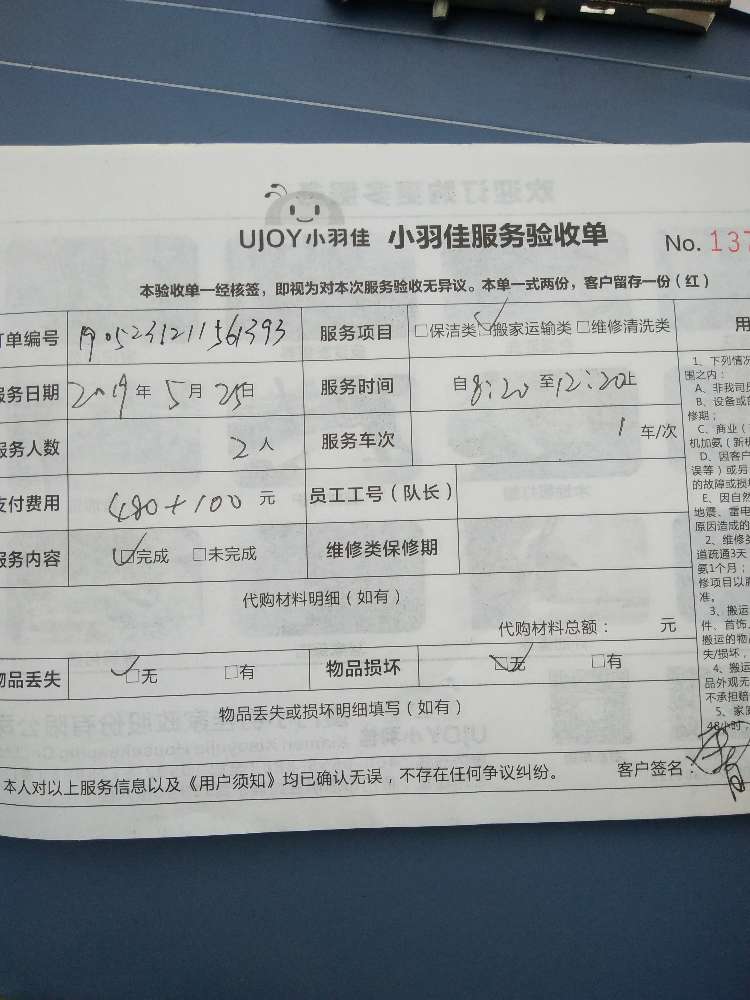 UJOY小羽佳 小羽佳服务验收单 No. 137
本验收单一经核签，即视为对本次服务验收无异议。本单一式两份，客户留存一份（红）
订单编号 1905231211561393 服务项目 □保洁类 ☑搬家运输类 □维修清洗类
服务日期 2019年5月25日 服务时间 自8:20至12:20止
服务人数 2人 服务车次 1 车/次
支付费用 480+100元 员工工号（队长）
服务内容 ☑完成 □未完成 维修类保修期
代购材料明细（如有）
代购材料总额： 元
物品丢失 ☑无 □有 物品损坏 ☑无 □有
物品丢失或损坏明细填写（如有）
本人对以上服务信息以及《用户须知》均已确认无误，不存在任何争议纠纷。 客户签名：
用
1、下列情况
围之内：
A、非我司员
B、设备或
修期；
C、商业（
机加氨（新机
D、因客户
误等）或另
的故障或损坏
E、因自然
地震、雷电
原因造成的
2、维修类
道疏通3天
氨1个月；
修项目以
准。
3、搬运
件、首饰、
搬运的物品
失/损坏，
4、搬运
品外观无
不承担赔
5、家庭
48小时，